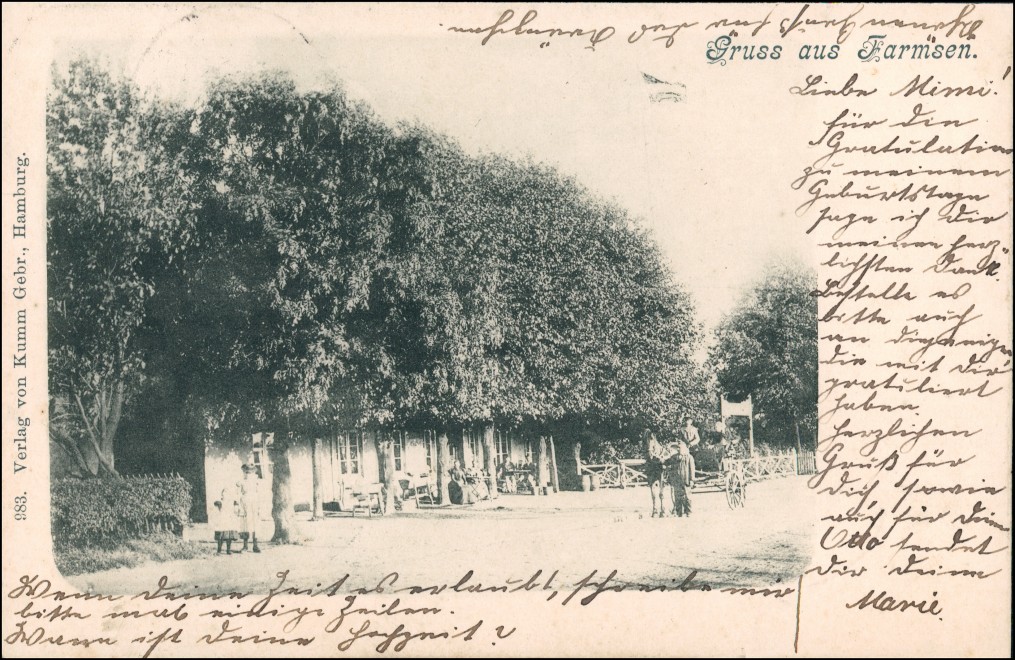 Gruss aus Farmsen.
Liebe Mimi!
für die
Gratulation
zu meinem
Geburtstage
sage ich Dir
meinen herz-
lichsten Dank.
Bestelle es
bitte auch
an diejenigen
die mit Dir
gratuliert
haben.
Herzlichen
Gruß für
Dich, sowie
auch für Dein
Otto sendet
Dir Deine
Marie.
Wenn deine Zeit es erlaubt, schreibe mir
bitte mal einige Zeilen.
Wann ist deine Hochzeit?
983. Verlag von Kumm Gebr., Hamburg.